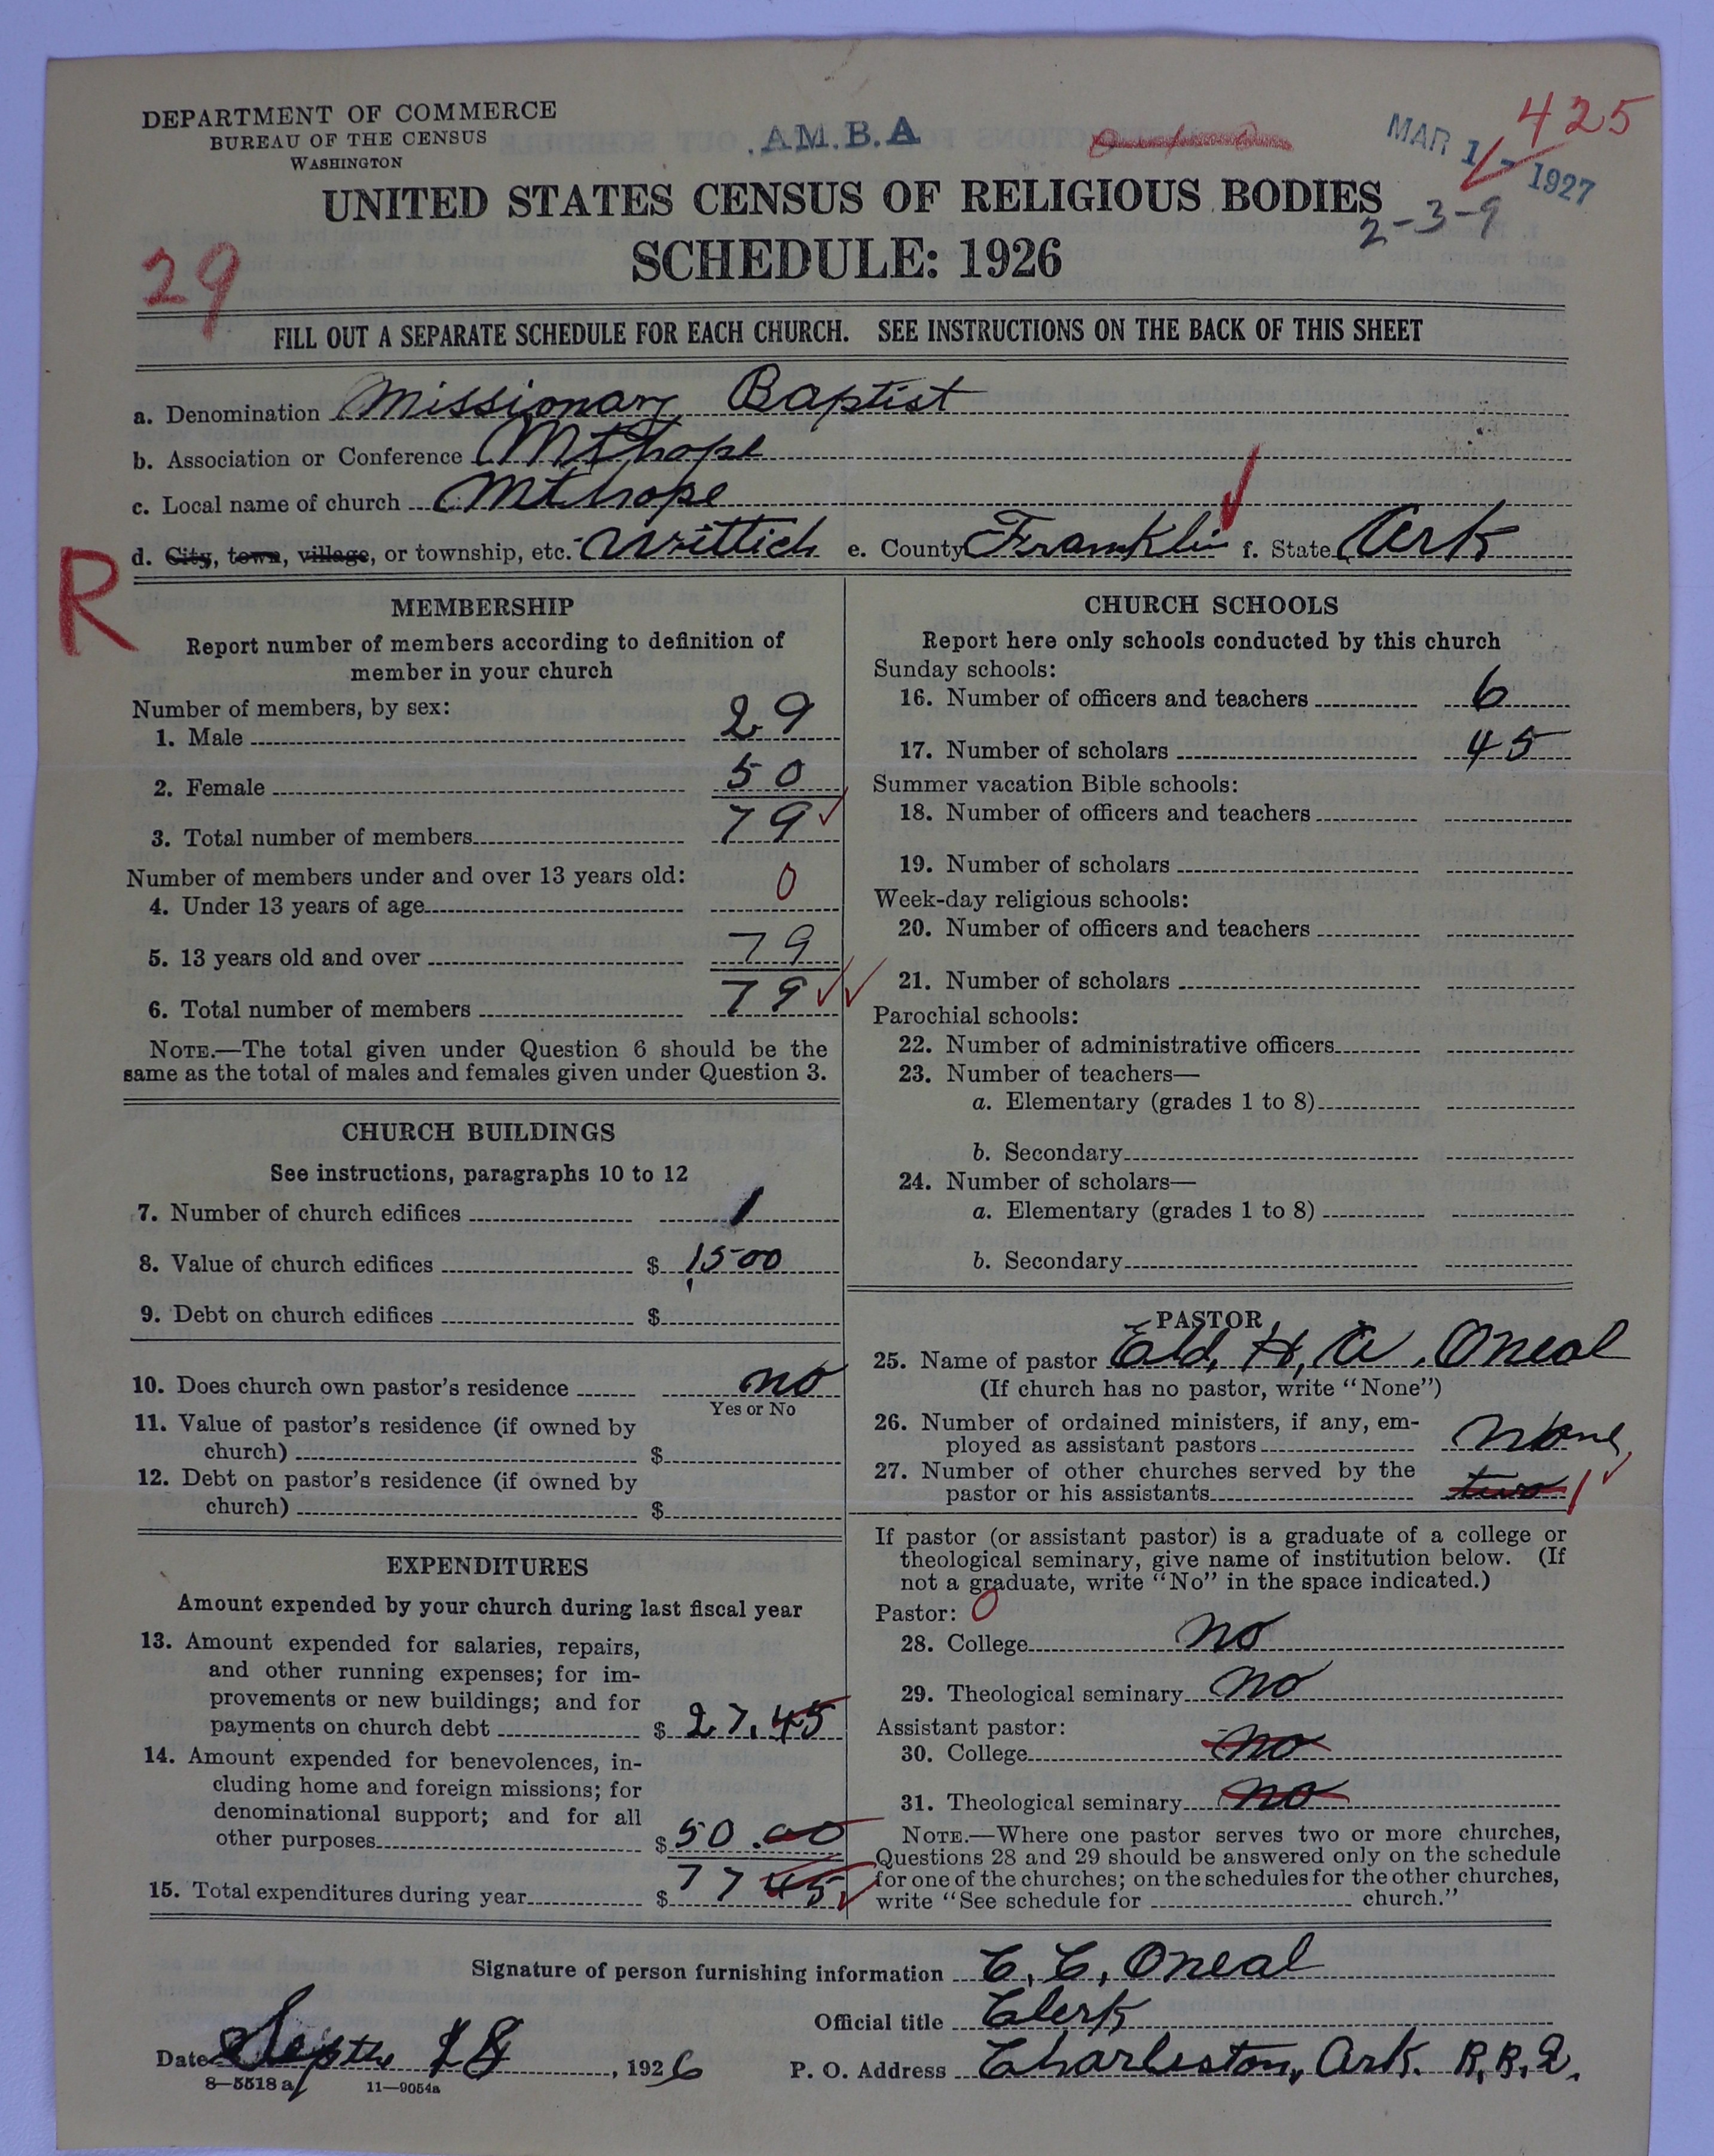 DEPARTMENT OF COMMERCE
BUREAU OF THE CENSUS
WASHINGTON
A.M.B.A
425
MAR 17 1927
2-3-9
UNITED STATES CENSUS OF RELIGIOUS BODIES
SCHEDULE: 1926
29
FILL OUT A SEPARATE SCHEDULE FOR EACH CHURCH. SEE INSTRUCTIONS ON THE BACK OF THIS SHEET
a. Denomination Missionary Baptist
b. Association or Conference Mt hope
c. Local name of church Mt hope
d. City, town, village, or township, etc. Wittich e. County Franklin f. State Ark
R
MEMBERSHIP
Report number of members according to definition of
member in your church
Number of members, by sex:
1. Male 29
2. Female 50
3. Total number of members 79
Number of members under and over 13 years old:
4. Under 13 years of age 0
5. 13 years old and over 79
6. Total number of members 79
NOTE.—The total given under Question 6 should be the
same as the total of males and females given under Question 3.
CHURCH BUILDINGS
See instructions, paragraphs 10 to 12
7. Number of church edifices 1
8. Value of church edifices $ 1500
9. Debt on church edifices $
10. Does church own pastor's residence no
Yes or No
11. Value of pastor's residence (if owned by
church) $
12. Debt on pastor's residence (if owned by
church) $
EXPENDITURES
Amount expended by your church during last fiscal year
13. Amount expended for salaries, repairs,
and other running expenses; for im-
provements or new buildings; and for
payments on church debt $ 27.45
14. Amount expended for benevolences, in-
cluding home and foreign missions; for
denominational support; and for all
other purposes $ 50.00
15. Total expenditures during year $ 77 45
CHURCH SCHOOLS
Report here only schools conducted by this church
Sunday schools:
16. Number of officers and teachers 6
17. Number of scholars 45
Summer vacation Bible schools:
18. Number of officers and teachers
19. Number of scholars
Week-day religious schools:
20. Number of officers and teachers
21. Number of scholars
Parochial schools:
22. Number of administrative officers
23. Number of teachers—
a. Elementary (grades 1 to 8)
b. Secondary
24. Number of scholars—
a. Elementary (grades 1 to 8)
b. Secondary
PASTOR
25. Name of pastor Eld. H. A. Oneal
(If church has no pastor, write "None")
26. Number of ordained ministers, if any, em-
ployed as assistant pastors none
27. Number of other churches served by the
pastor or his assistants two 1
If pastor (or assistant pastor) is a graduate of a college or
theological seminary, give name of institution below. (If
not a graduate, write "No" in the space indicated.)
Pastor: 0
28. College no
29. Theological seminary no
Assistant pastor:
30. College no
31. Theological seminary no
NOTE.—Where one pastor serves two or more churches,
Questions 28 and 29 should be answered only on the schedule
for one of the churches; on the schedules for the other churches,
write "See schedule for church."
Signature of person furnishing information C. C. Oneal
Official title Clerk
Date Septr 18, 1926 P. O. Address Charleston, Ark. R. R. 2.
8—5518a 11—9054a